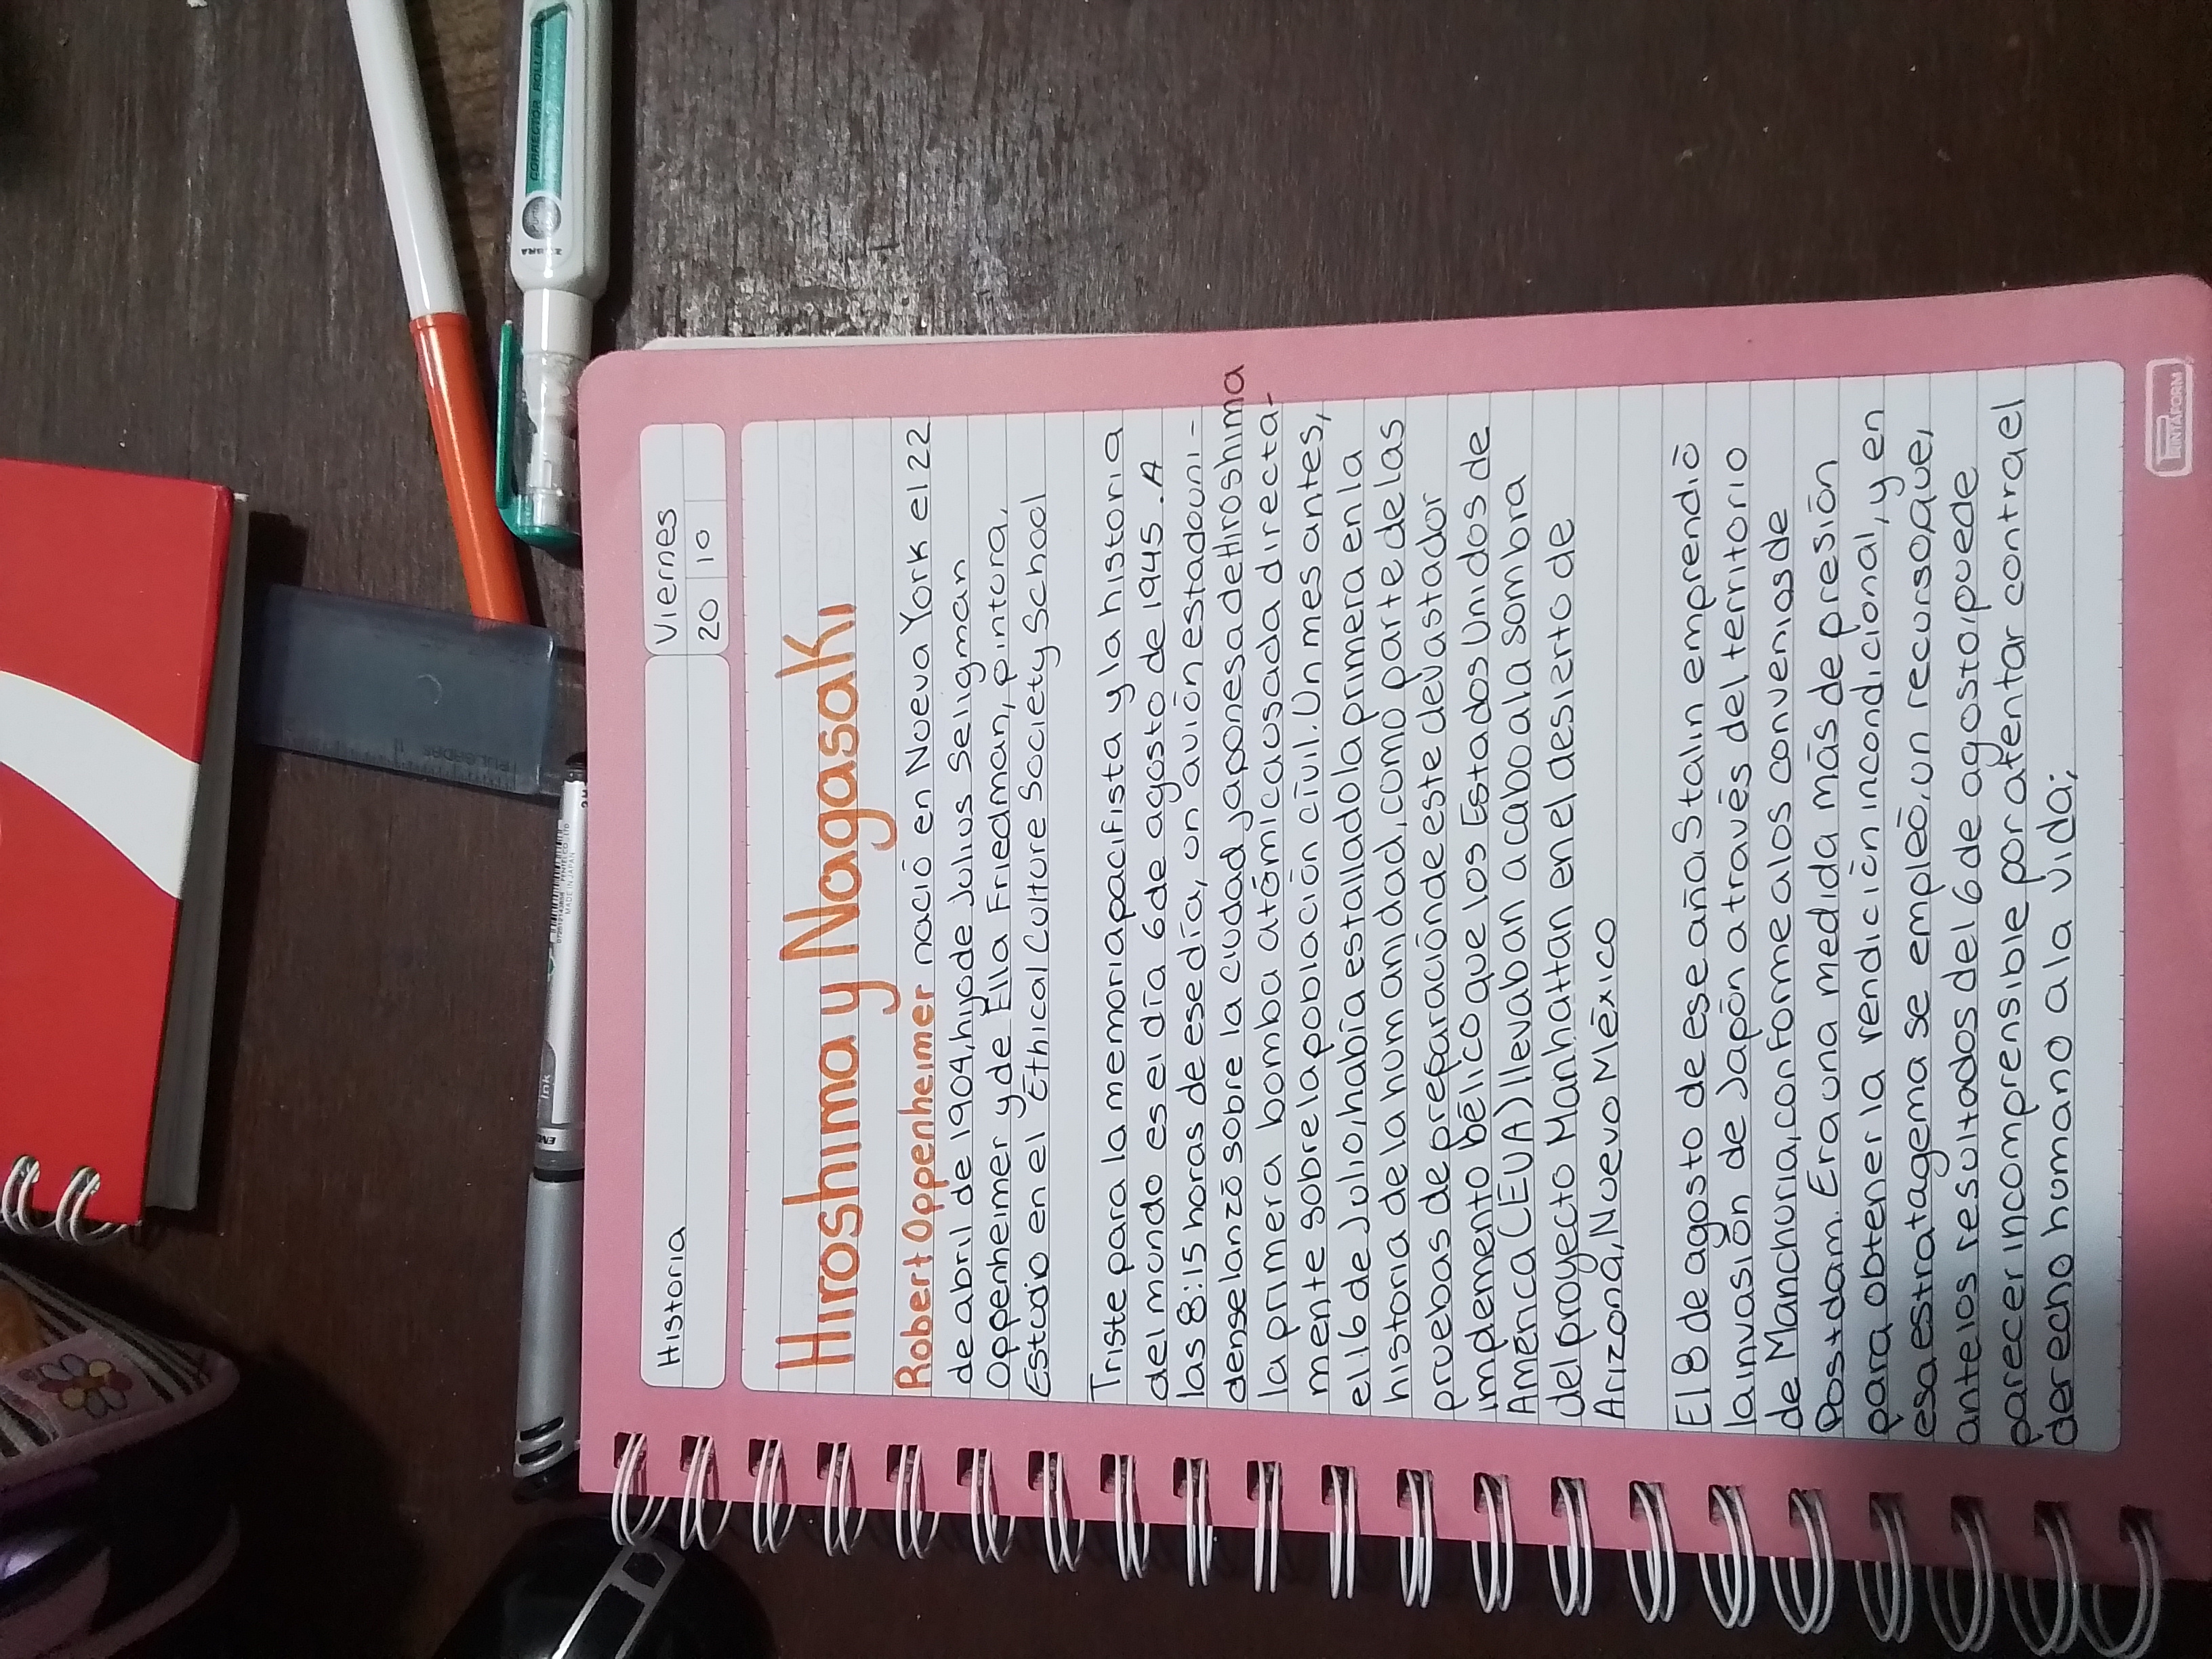 Historia
Viernes
20 10
Hiroshima y Nagasaki
Robert Oppenheimer nació en Nueva York el 22
de abril de 1904, hijo de Julius Seligman
Oppenheimer y de Ella Friedman, pintora,
Estudio en el Ethical Culture Society School
Triste para la memoria pacifista y la historia
del mundo es el día 6 de agosto de 1945. A
las 8:15 horas de ese día, un avión estadouni-
dense lanzó sobre la ciudad japonesa de Hiroshima
la primera bomba atómica usada directa-
mente sobre la población civil. Un mes antes,
el 16 de Julio, había estallado la primera en la
historia de la humanidad, como parte de las
pruebas de preparación de este devastador
implemento bélico que los Estados Unidos de
América (EUA) llevaban a cabo a la sombra
del proyecto Manhattan en el desierto de
Arizona, Nuevo México
El 8 de agosto de ese año, Stalin emprendió
la invasión de Japón a través del territorio
de Manchuria, conforme a los convenios de
Postdam. Era una medida más de presión
para obtener la rendición incondicional, y en
esa estratagema se empleó, un recurso, que,
ante los resultados del 6 de agosto, puede
parecer incomprensible por atentar contra el
derecho humano a la vida;
PUNTAFORM
ZEBRA
CORRECTOR ROLLER
PULGADAS
MADE IN JAPAN
Ink